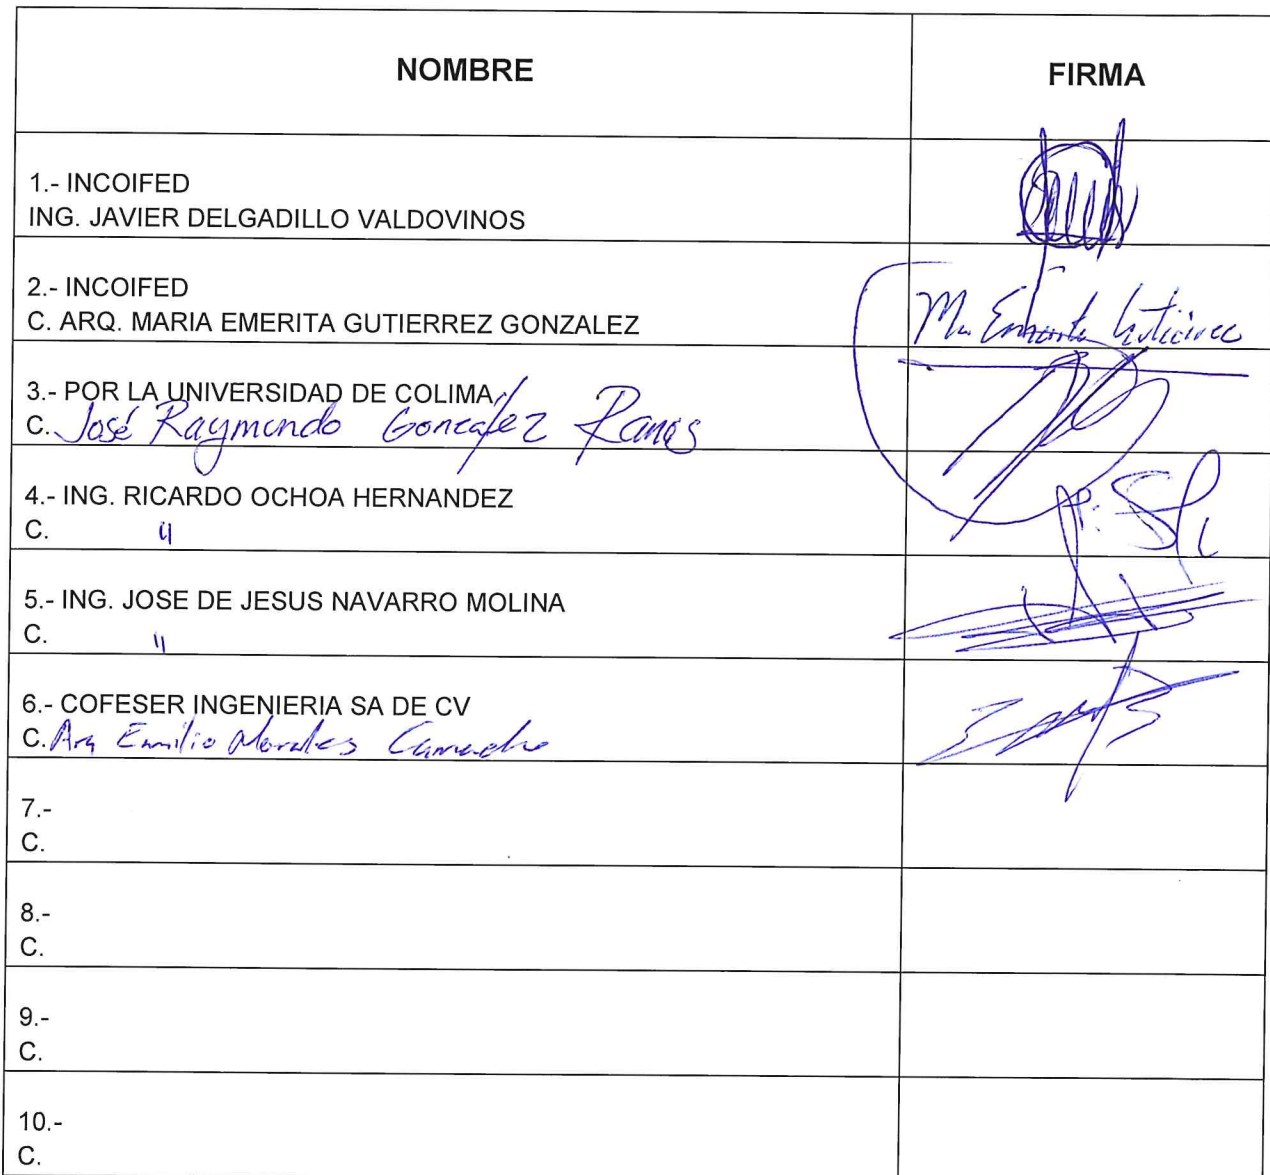 NOMBRE
FIRMA
1.- INCOIFED
ING. JAVIER DELGADILLO VALDOVINOS
2.- INCOIFED
C. ARQ. MARIA EMERITA GUTIERREZ GONZALEZ
Ma Emerita Gutierrez
3.- POR LA UNIVERSIDAD DE COLIMA
C. José Raymundo Gonzalez Ramos
4.- ING. RICARDO OCHOA HERNANDEZ
C. "
5.- ING. JOSE DE JESUS NAVARRO MOLINA
C. "
6.- COFESER INGENIERIA SA DE CV
C. Arq Emilio Morales Camacho
7.-
C.
8.-
C.
9.-
C.
10.-
C.